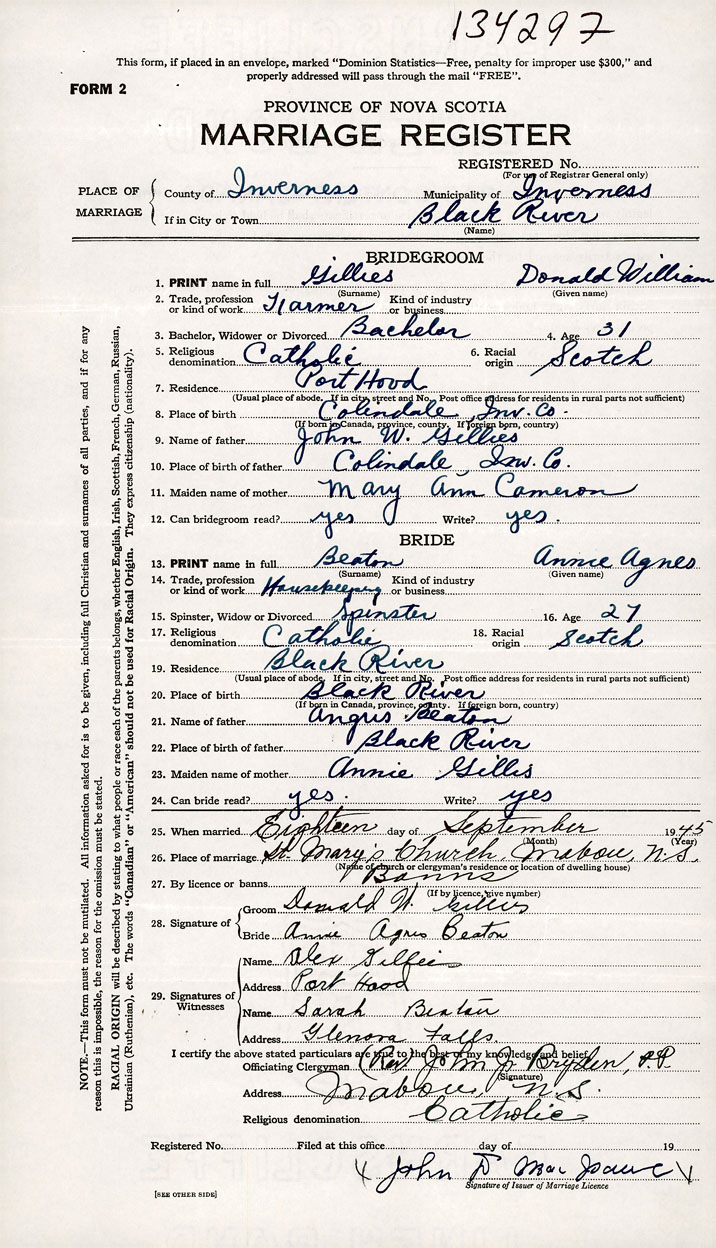 134297
This form, if placed in an envelope, marked "Dominion Statistics—Free, penalty for improper use $300," and
properly addressed will pass through the mail "FREE".
FORM 2
PROVINCE OF NOVA SCOTIA
MARRIAGE REGISTER
REGISTERED No.
(For use of Registrar General only)
PLACE OF MARRIAGE
County of Inverness Municipality of Inverness
If in City or Town Black River
(Name)
BRIDEGROOM
1. PRINT name in full Gillies Donald William
(Surname) (Given name)
2. Trade, profession or kind of work Farmer Kind of industry or business
3. Bachelor, Widower or Divorced Bachelor 4. Age 31
5. Religious denomination Catholic 6. Racial origin Scotch
7. Residence Port Hood
(Usual place of abode. If in city, street and No. Post office address for residents in rural parts not sufficient)
8. Place of birth Colindale, Inv. Co.
(If born in Canada, province, county. If foreign born, country)
9. Name of father John W. Gillies
10. Place of birth of father Colindale, Inv. Co.
11. Maiden name of mother Mary Ann Cameron
12. Can bridegroom read? yes Write? yes.
BRIDE
13. PRINT name in full Beaton Annie Agnes
(Surname) (Given name)
14. Trade, profession or kind of work Housekeeping Kind of industry or business
15. Spinster, Widow or Divorced Spinster 16. Age 27
17. Religious denomination Catholic 18. Racial origin Scotch
19. Residence Black River
(Usual place of abode. If in city, street and No. Post office address for residents in rural parts not sufficient)
20. Place of birth Black River
(If born in Canada, province, county. If foreign born, country)
21. Name of father Angus Beaton
22. Place of birth of father Black River
23. Maiden name of mother Annie Gillis
24. Can bride read? yes. Write? yes
25. When married Eighteen day of September 1945
(Month) (Year)
26. Place of marriage St. Mary's Church, Mabou, N.S.
(Name of church or clergyman's residence or location of dwelling house)
27. By licence or banns Banns
(If by licence, give number)
28. Signature of
Groom Donald W. Gillies
Bride Annie Agnes Beaton
29. Signatures of Witnesses
Name Alex Gillies
Address Port Hood
Name Sarah Beaton
Address Glenora Falls.
I certify the above stated particulars are true to the best of my knowledge and belief.
Officiating Clergyman (Rev) John J. Bryden, P.P.
(Signature)
Address Mabou, N.S.
Religious denomination Catholic
Registered No. Filed at this office day of 19
John D Mac Isaac
Signature of Issuer of Marriage Licence
[SEE OTHER SIDE]
NOTE.—This form must not be mutilated. All information asked for is to be given, including full Christian and surnames of all parties, and if for any
reason this is impossible, the reason for the omission must be stated.
RACIAL ORIGIN will be described by stating to what people or race each of the parents belongs, whether English, Irish, Scottish, French, German, Russian,
Ukrainian (Ruthenian), etc. The words "Canadian" or "American" should not be used for Racial Origin. They express citizenship (nationality).